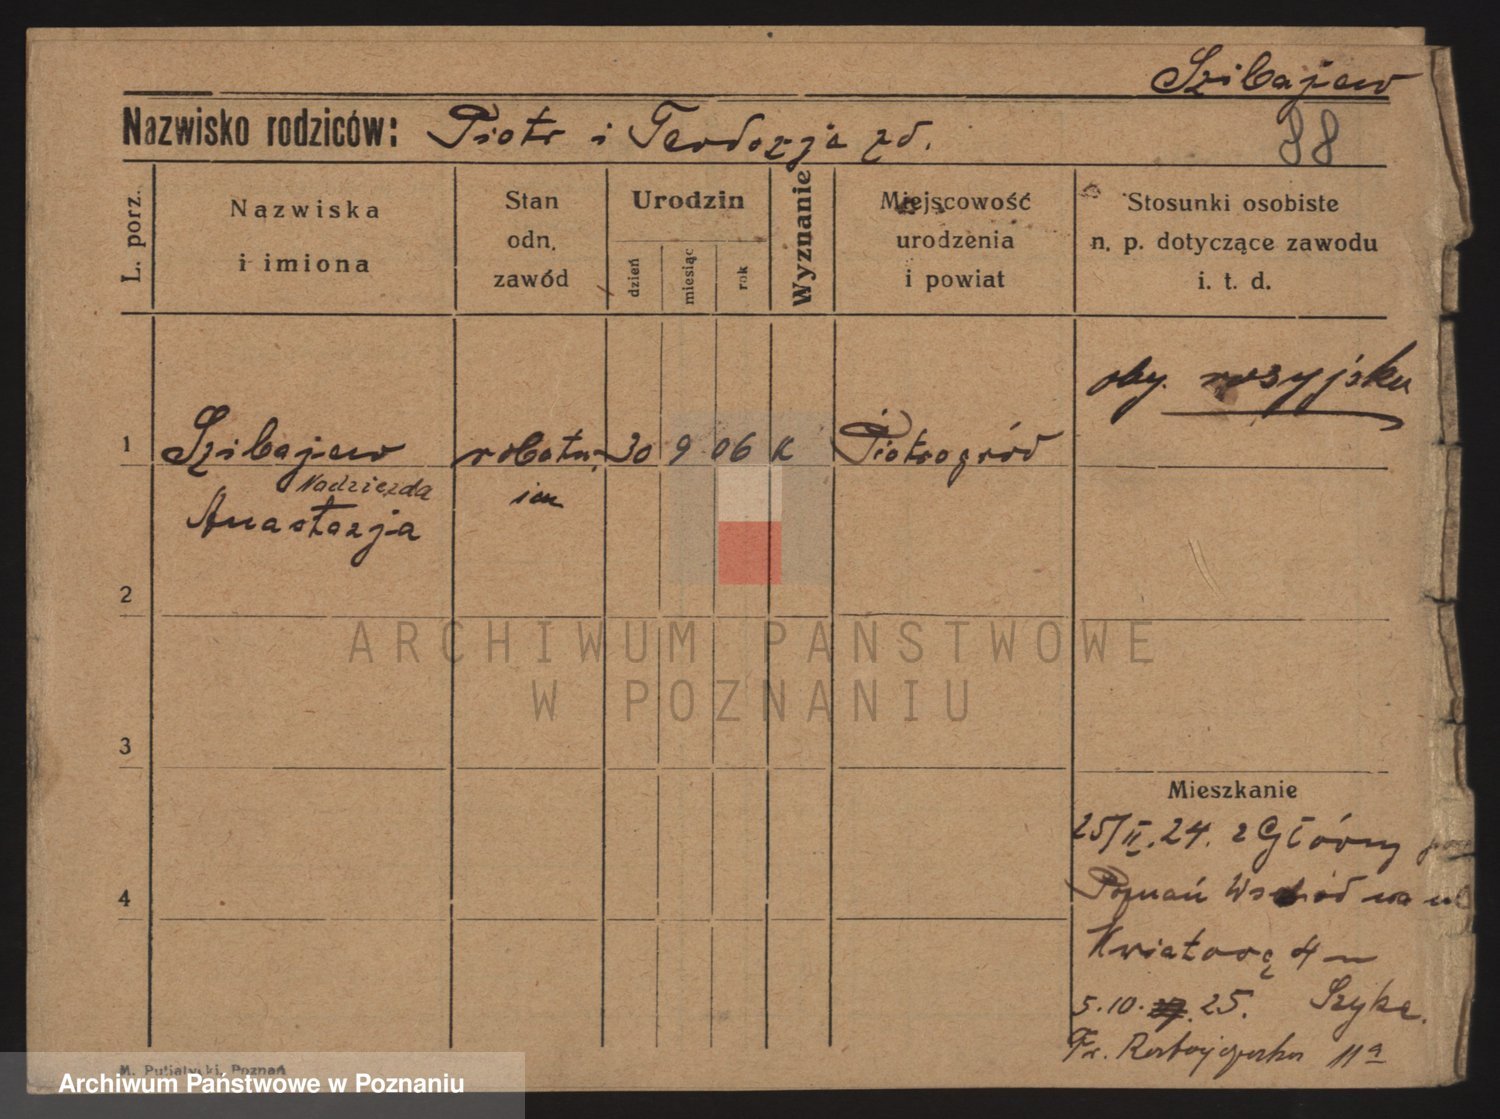 Szibajew
Nazwisko rodziców: Piotr i Teodozja zd.
88
L. porz.
Nazwiska
i imiona
Stan
odn.
zawód
Urodzin
dzień
miesiąc
rok
Wyznanie
Miejscowość
urodzenia
i powiat
Stosunki osobiste
n. p. dotyczące zawodu
i. t. d.
oby. rosyjska
1 Szibajew robotn. 30 9 06 K Piotrogród
Nadziezda
Anastazja
2
3
4
Mieszkanie
25/II.24. z Główny
Poznań Wschód na ul
Kwiatową 4
5.10. 25.
11a
M. Putiatycki, Poznań
ARCHIWUM PAŃSTWOWE
W POZNANIU
Archiwum Państwowe w Poznaniu